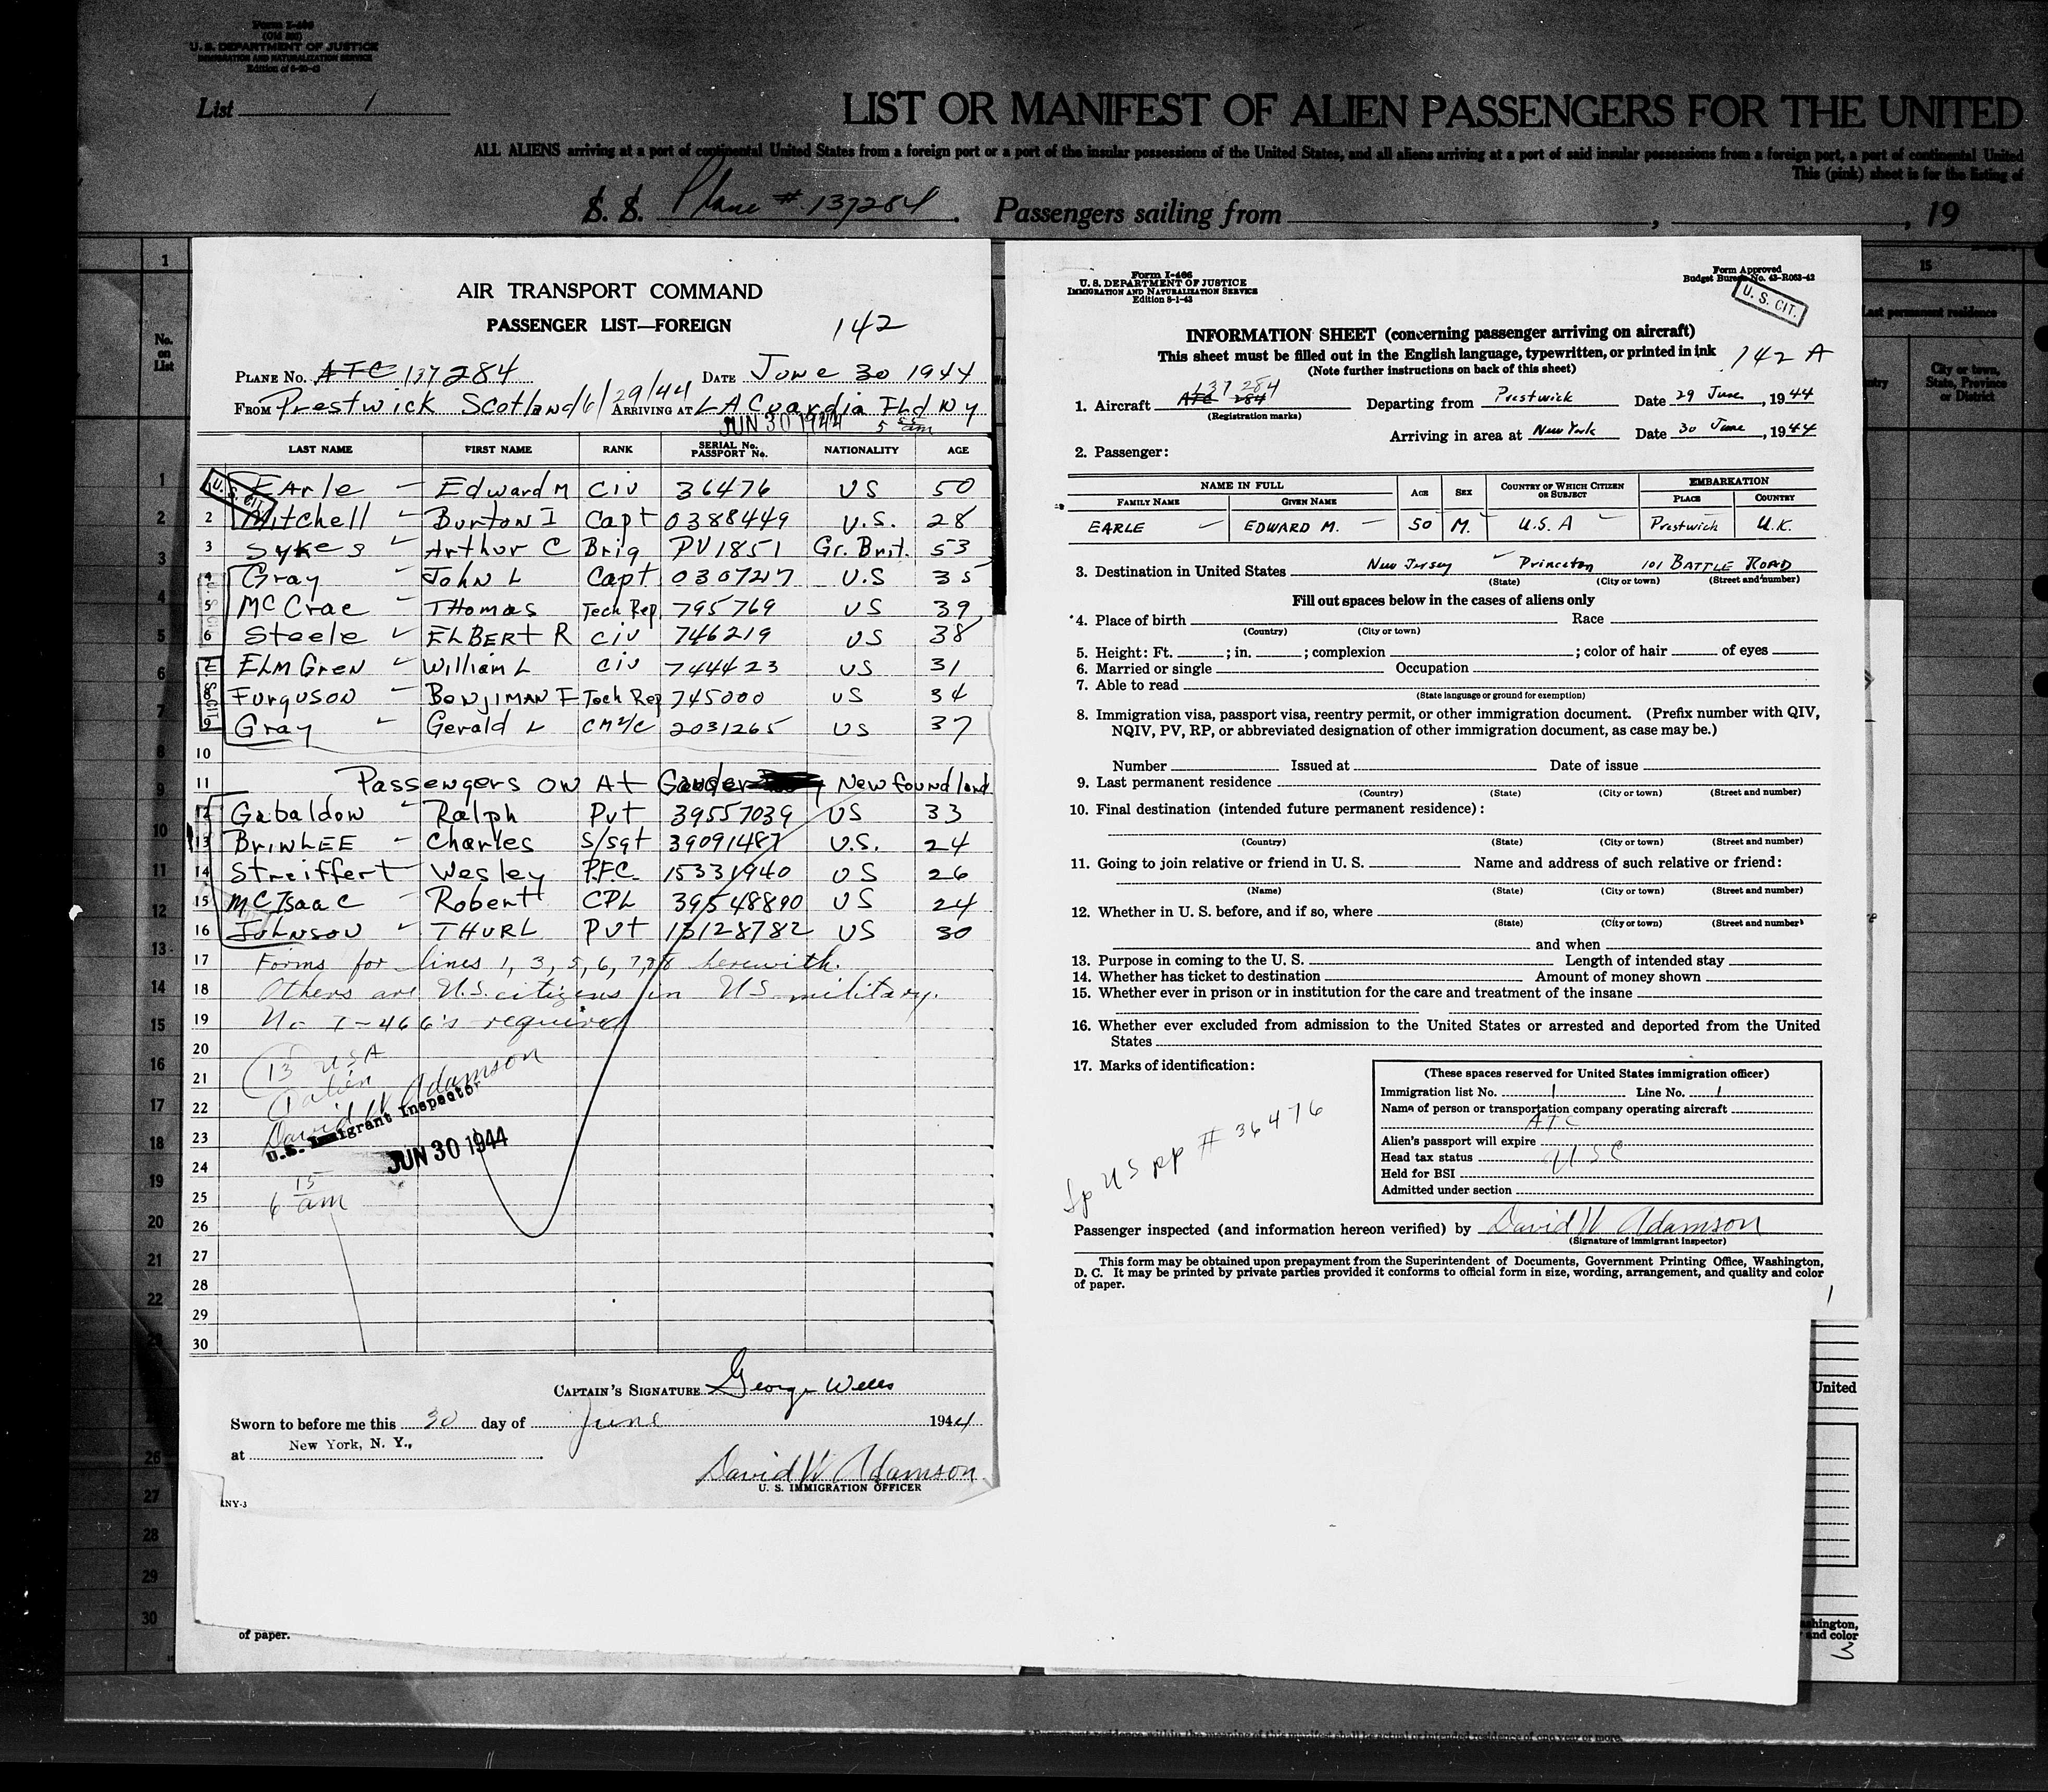 Form I-466
(Old 632)
U. S. DEPARTMENT OF JUSTICE
IMMIGRATION AND NATURALIZATION SERVICE
List 1
LIST OR MANIFEST OF ALIEN PASSENGERS FOR THE UNITED
ALL ALIENS arriving at a port of continental United States from a foreign port or a port of the insular possessions of the United States, and all aliens arriving at a port of said insular possessions from a foreign port, a port of continental United
This (pink) sheet is for the listing of
S. S. Plane # 137284. Passengers sailing from , , 19
No. on List
AIR TRANSPORT COMMAND
PASSENGER LIST—FOREIGN 142
PLANE No. ATC 137284 DATE June 30 1944
FROM Prestwick Scotland 6/29/44 ARRIVING AT LA Guardia FLd NY
JUN 30 1944 5 55 am
LAST NAME FIRST NAME RANK SERIAL No. PASSPORT No. NATIONALITY AGE
U. S. CIT.
1 Earle Edward M Civ 36476 US 50
2 Mitchell Burton I Capt 0388449 U.S. 28
3 Sykes Arthur C Brig PV1851 Gr. Brit. 53
4 Gray John L Capt 0307217 U.S 35
5 McCrae THomas Tech Rep 795769 US 39
6 Steele ELBERT R Civ 746219 US 38
7 ELMGren William L Civ 744423 US 31
8 Furguson BenjIMAN F Tech Rep 745000 US 34
9 Gray Gerald L CM2/C 2031265 US 37
10
11 Passengers on At Gander New foundland
12 Gabaldon Ralph Pvt 39557039 US 33
13 BrinLEE Charles S/sgt 39091487 U.S. 24
14 Streiffert Wesley P.F.C. 15331940 US 26
15 McIsaac Robert CPL 39548890 US 24
16 Johnson THURL Pvt 13128782 US 30
17 Forms for lines 1, 3, 5, 6, 7, 8 herewith.
18 Others are U.S. citizens in US military.
19 No I-466's required
20
13 USA
21 1 alien
22 David W Adamson
U.S. Immigrant Inspector
23 JUN 30 1944
24
25 6 15 am
26
27
28
29
30
CAPTAIN'S SIGNATURE George Wells
Sworn to before me this 30 day of June 1944
at New York, N. Y.,
David W Adamson
U. S. IMMIGRATION OFFICER
NY-3
of paper.
Form I-466
U. S. DEPARTMENT OF JUSTICE
IMMIGRATION AND NATURALIZATION SERVICE
Edition 8-1-43
Form Approved
Budget Bureau No. 43-R063-42
U. S. CIT.
INFORMATION SHEET (concerning passenger arriving on aircraft)
This sheet must be filled out in the English language, typewritten, or printed in ink 142 A
(Note further instructions on back of this sheet)
137 284
1. Aircraft ATC 284 Departing from Prestwick Date 29 June, 1944
(Registration marks)
Arriving in area at New York Date 30 June, 1944
2. Passenger:
NAME IN FULL AGE SEX COUNTRY OF WHICH CITIZEN OR SUBJECT EMBARKATION
FAMILY NAME GIVEN NAME PLACE COUNTRY
EARLE EDWARD M. 50 M. U.S.A Prestwick U.K.
3. Destination in United States New Jersey Princeton 101 BATTLE ROAD
(State) (City or town) (Street and number)
Fill out spaces below in the cases of aliens only
*4. Place of birth Race
(Country) (City or town)
5. Height: Ft. ; in. ; complexion ; color of hair of eyes
6. Married or single Occupation
7. Able to read
(State language or ground for exemption)
8. Immigration visa, passport visa, reentry permit, or other immigration document. (Prefix number with QIV,
NQIV, PV, RP, or abbreviated designation of other immigration document, as case may be.)
Number Issued at Date of issue
9. Last permanent residence
(Country) (State) (City or town) (Street and number)
10. Final destination (intended future permanent residence):
(Country) (State) (City or town) (Street and number)
11. Going to join relative or friend in U. S. Name and address of such relative or friend:
(Name) (State) (City or town) (Street and number)
12. Whether in U. S. before, and if so, where
(State) (City or town) (Street and number)
and when
13. Purpose in coming to the U. S. Length of intended stay
14. Whether has ticket to destination Amount of money shown
15. Whether ever in prison or in institution for the care and treatment of the insane
16. Whether ever excluded from admission to the United States or arrested and deported from the United
States
17. Marks of identification:
(These spaces reserved for United States immigration officer)
Immigration list No. 1 Line No. 1
Name of person or transportation company operating aircraft
ATC
Alien's passport will expire
Head tax status USC
Held for BSI
Admitted under section
Sp US PP # 36476
Passenger inspected (and information hereon verified) by David W Adamson
(Signature of immigrant inspector)
This form may be obtained upon prepayment from the Superintendent of Documents, Government Printing Office, Washington,
D. C. It may be printed by private parties provided it conforms to official form in size, wording, arrangement, and quality and color
of paper.
1
15
Last permanent residence
City or town, State, Province or District
United
shington,
and color
3